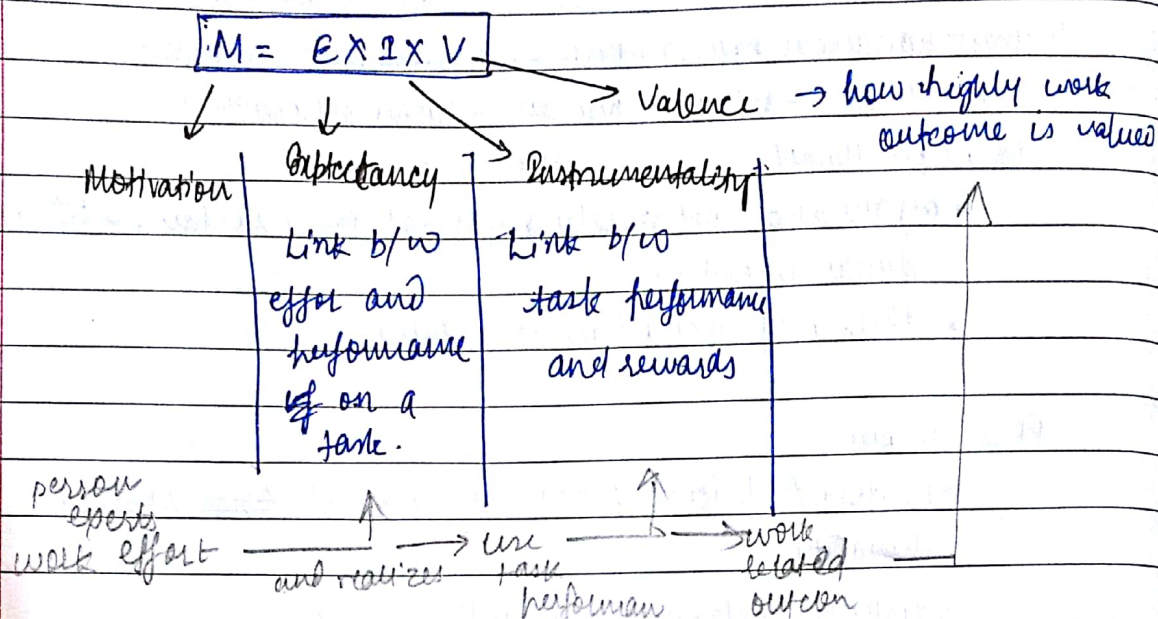 M = E X I X V
Valence → how highly work
outcome is valued
Motivation
Exptectancy
Link b/w
effor and
performance
on a
task.
Instrumentality
Link b/w
task performance
and rewards
person
experts
work effort
and realizes
task
performan
work
related
outcom